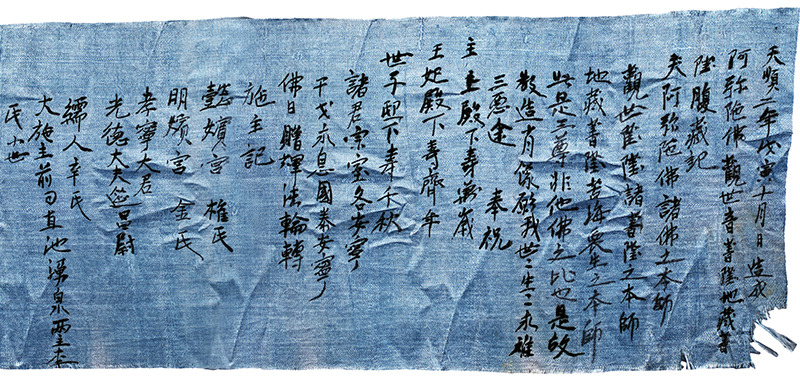 天順二年戊寅十月日造成
阿弥陁佛觀世音菩薩地藏菩
薩腹藏記
夫阿弥陁佛諸佛之本師
觀世音菩薩諸菩薩之本師
地藏菩薩苦海衆生之本師
此是三尊非他佛之比也是故
敬造肖像願我世〻生〻永離
三惡途 奉祝
主上殿下壽萬歲
王妃殿下壽齊年
世子邸下壽千秋
諸君宗室各安寧
干戈永息國泰安寧
佛日增輝法輪轉
施主記
懿嬪宮 權氏
明嬪宮 金氏
孝寧大君
光德大夫延昌尉
孺人辛氏
大施主前司直池 泉兩主李
氏小世